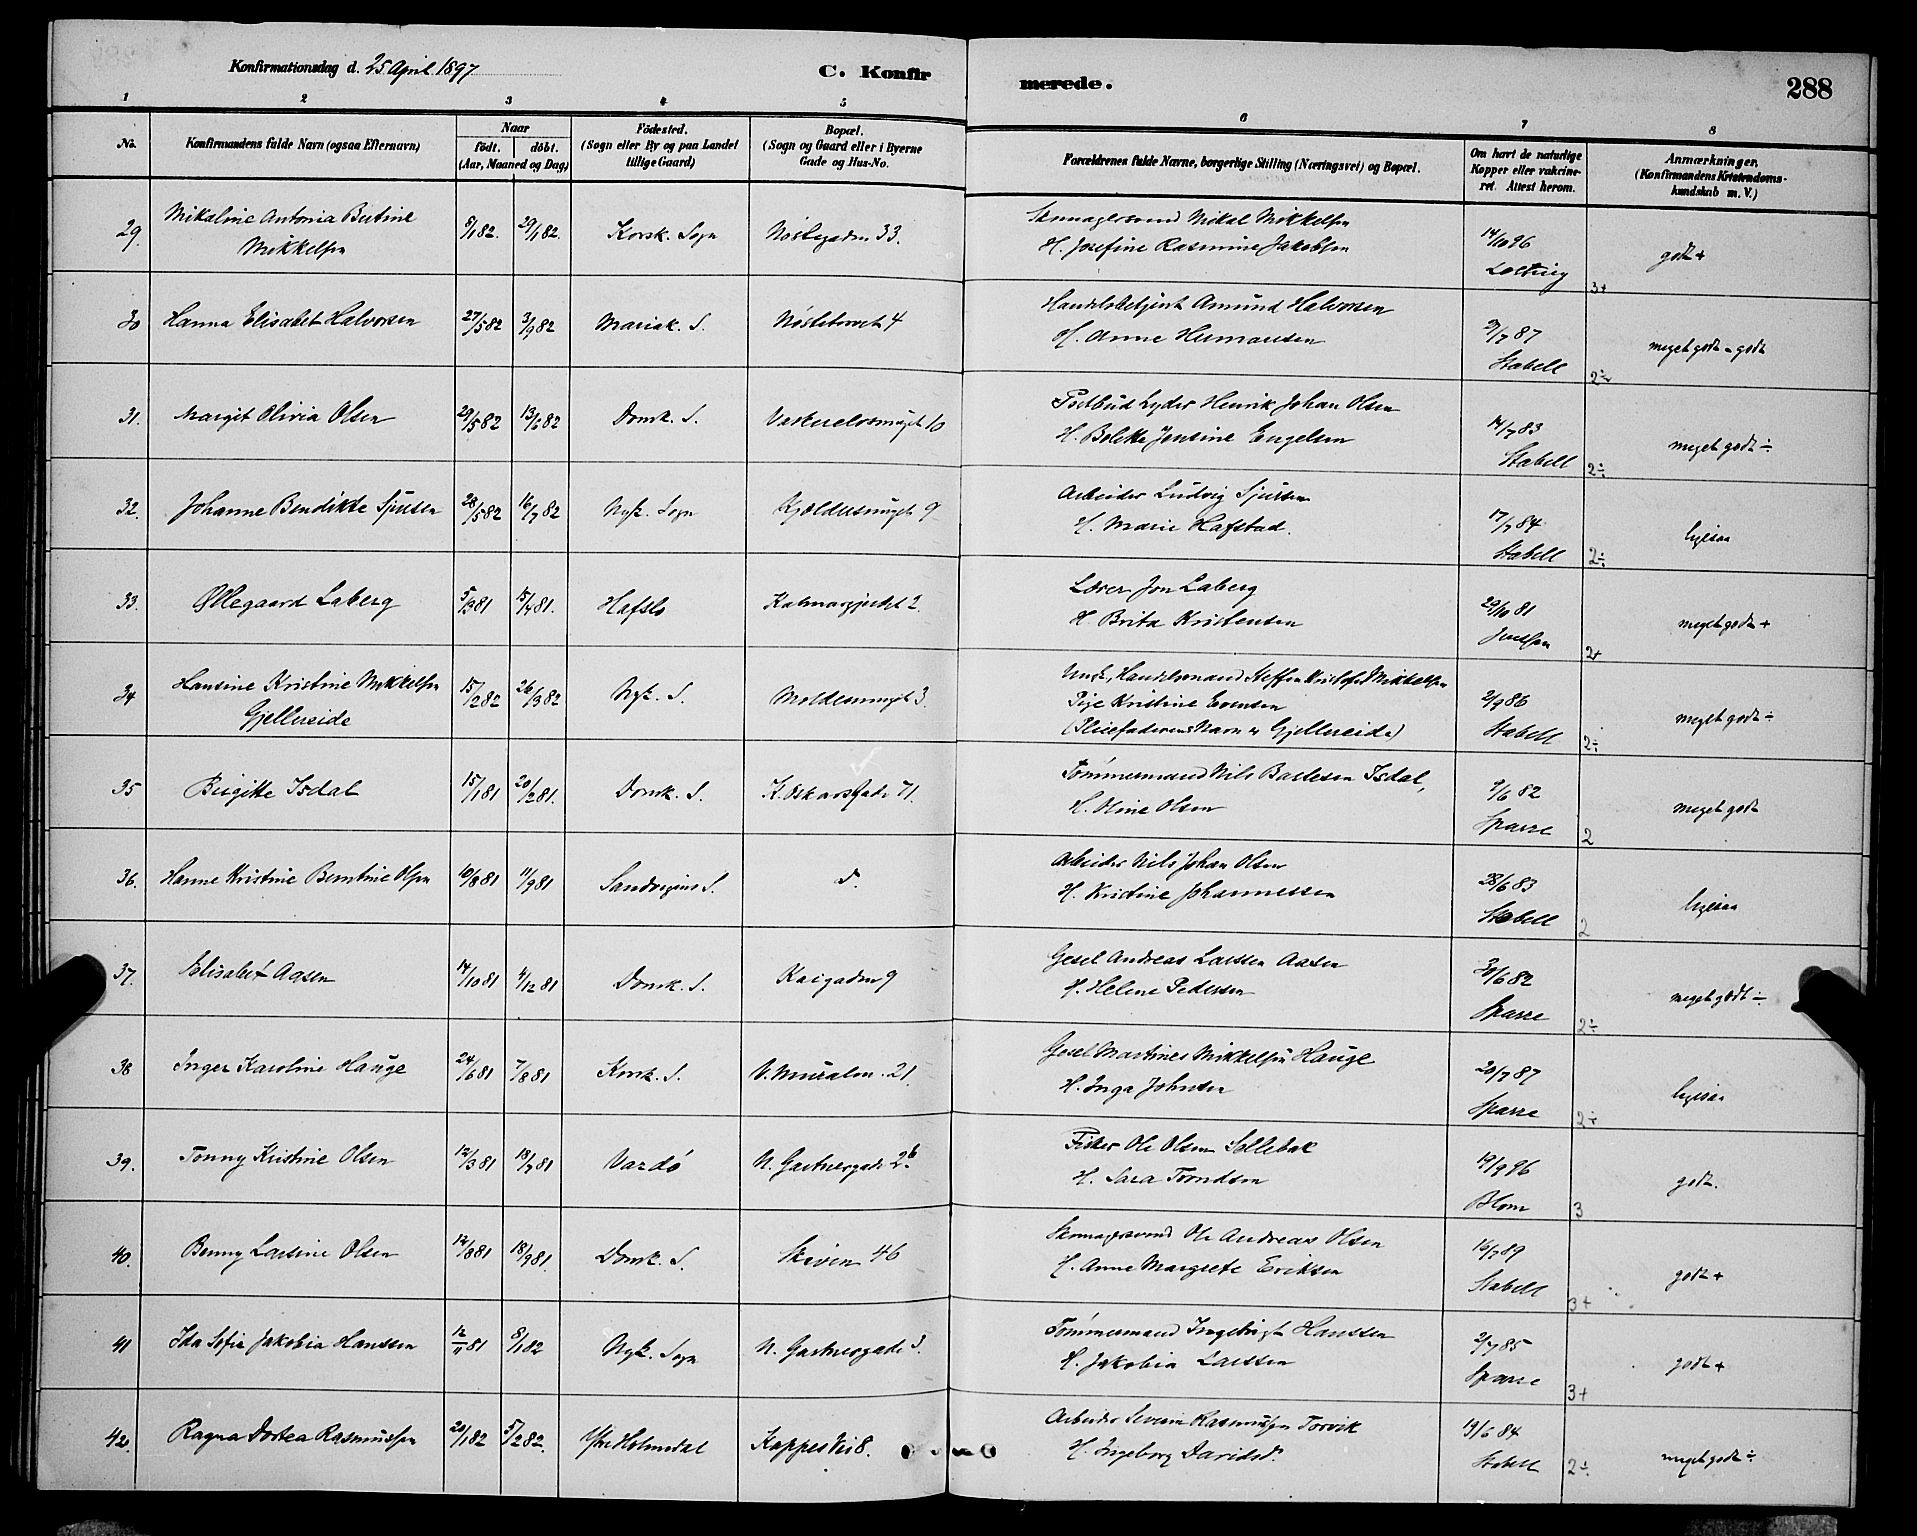 Konfirmationsdag d. 25 April 1897
C. Konfir
merede.
288
1 2 3 4 5 6 7 8
No.
Konfirmandens fulde Navn (ogsaa Efternavn)
Naar
födt. döbt.
(Aar, Maaned og Dag)
Födested.
(Sogn eller By og paa Landet
tillige Gaard)
Bopæl.
(Sogn og Gaard eller i Byerne
Gade og Hus-No.
Forældrenes fulde Navne, borgerlige Stilling (Næringsvei) og Bopæl.
Om havt de naturlige
Kopper eller vakcine-
ret. Attest herom.
Anmærkninger.
(Konfirmandens Kristendoms-
kundskab m. V.)
29. Mikaline Antonia Butine
Mikkelsen
5/1 82. 29/1 82. Korsk. Sogn Nöstegaden 33.
Skomagersvend Mikal Mikkelsen
H. Josefine Rasmine Jakobsen
14/10 96
godt +
3+
30 Hanna Elisabet Halvorsen 27/5 82 3/9 82 Mariak. S. Nöstetorvet 4
Handelsbetjent Amund Halvorsen
H. Anne Hermansen
87
Stabell
meget godt - godt
2÷
31. Margit Olivia Olsen 29/5 82 13/6 82 Domk. S. 10
Postbud Lyder Henrik Johan Olsen
H. Bolette Jensine Engelsen
14/7 83
Stabell
meget godt ÷
2÷
32. Johanne Bendikte Sjursen 28/5 82 16/7 82 Nyk. Sogn Kjeldersmuget 9
Arbeider Ludvig Sjursen
H. Marie Hafstad.
17/7 84
Stabell
ligesaa
2÷
33. Ollegaard Laberg 5/3 81 15/4 81. Hafslo Kalmargjerdet 2.
Lærer Jon Laberg
H. Brita Kristensen
29/10 81
meget godt +
2+
34 Hansine Kristine Mikkelsen
Gjellereide
15/2 82 26/3 82 Nyk. S. Moldesmuget 3.
Ungk. Handelsmand Steffen Kristofer Mikkelsen
Pige Kristine Evensen
(Pleiefaderens Navn er Gjellereide)
2/9 86
Stabell
meget godt ÷
2÷
35 Birgitte Isdal 15/1 81 20/2 81. Domk. S. K. Oskarsgade 71.
Tömmermand Nils Bastesen Isdal,
H. Oline Olsen
9/6 82
Sparre
meget godt
2
36. Hanne Kristine Berntine Olsen 10/8 81 11/9 81 Sandvigens S. d.
Arbeider Nils Johan Olsen
H. Kristine Johannessen
28/6 83
Stabell
ligesaa
2
37. Elisabet Aasen 14/10 81 4/12 81 Domk. S. Kaigaden 9
Gesel Andreas Larssen Aasen
H. Helene Pedersen
30/6 82
Sparre
meget godt ÷
2÷
38 Inger Karoline Hauge 24/6 81 7/8 81 Korsk. S. V. Muralm. 21.
Gesel Martines Mikkelsen Hauge
H. Inga Johnsen
20/7 87
Sparre
ligesaa
2÷
39. Tonny Kristine Olsen 12/3 81 18/7 81 Vardö N. Gartnergade 2b
Fisker Ole Olsen Sollebak
H. Sara Tromdsen
19/9 96
Blom
godt.
3
40. Benny Larsine Olsen 14/8 81 18/9 81. Domk. S. Skiven 46
Skomagersvend Ole Andreas Olsen
H. Anne Margrete Eriksen
16/7 89
Stabell
godt +
3+
41 Ida Sofie Jakobia Hanssen 12/11 81 8/1 82 Nyk. Sogn N. Gartnergade 3.
Tömmermand Ingebrigt Hanssen
H. Jakobia Larssen
2/7 85
Sparre
godt +
3+
42. Ragna Dortea Rasmussen 20/1 82 5/2 82. Ytre Holmedal Kappes Vei 8.
Arbeider Severin Rasmussen Torvik
H. Ingeborg Davidsd.
19/6 84
Stabell
meget godt ÷
2÷